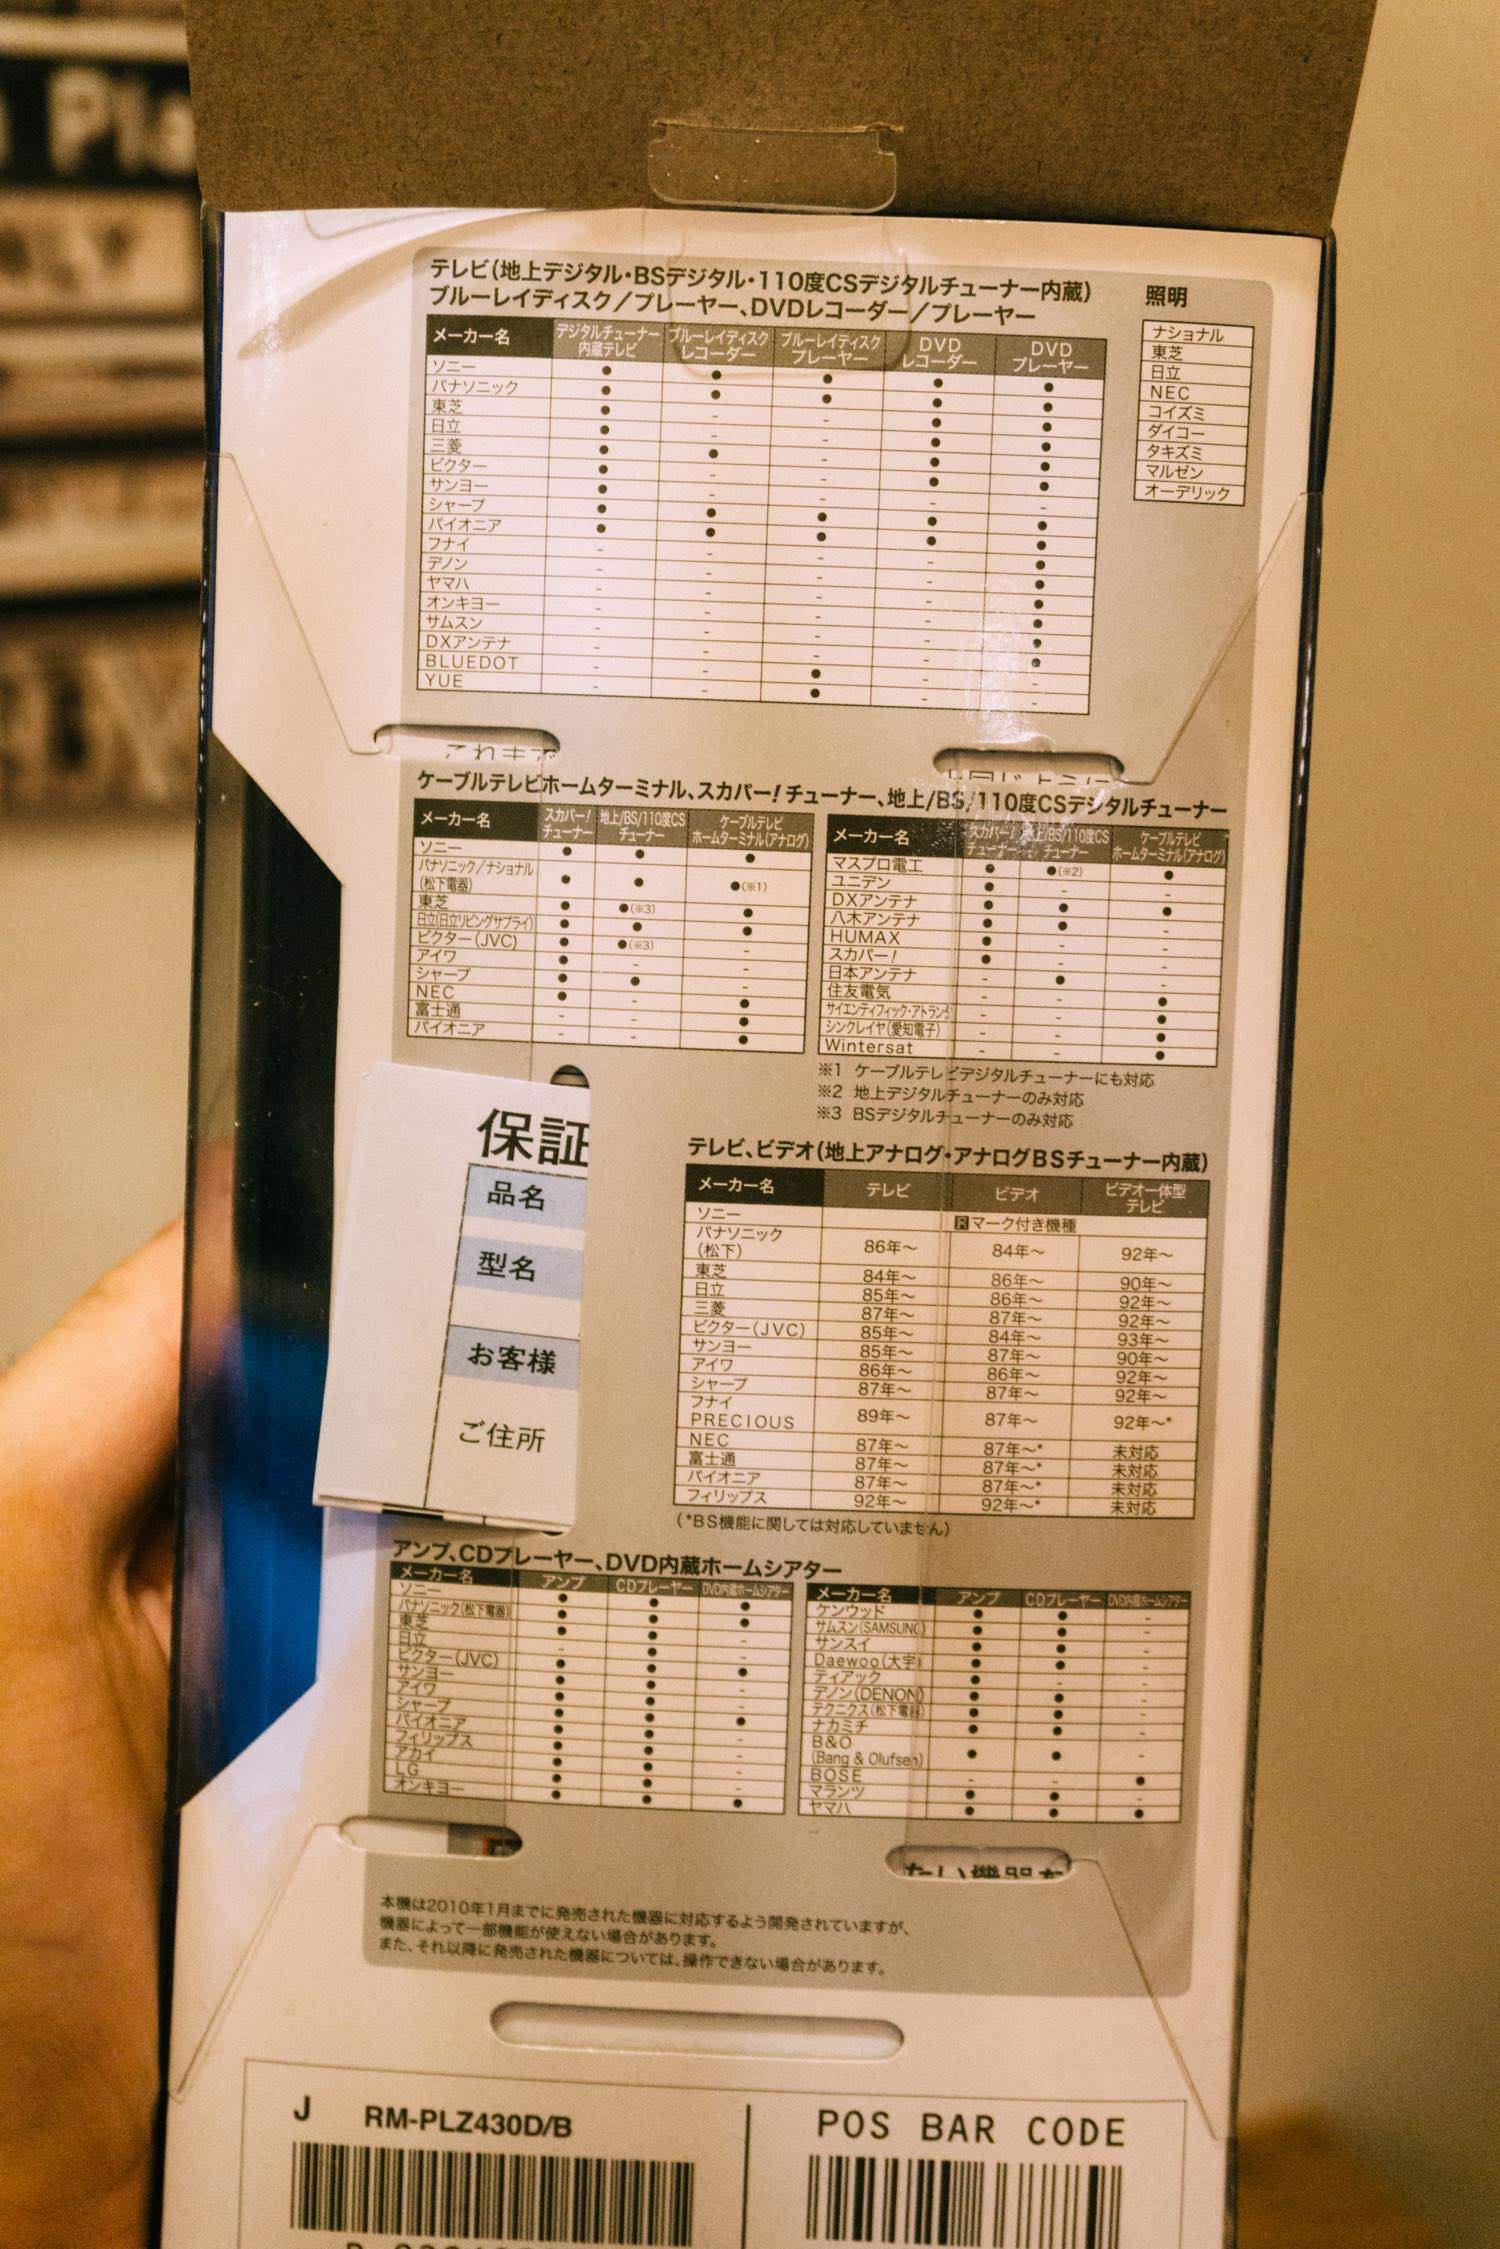 テレビ(地上デジタル・BSデジタル・110度CSデジタルチューナー内蔵)
ブルーレイディスク/プレーヤー、DVDレコーダー/プレーヤー
メーカー名 デジタルチューナー内蔵テレビ ブルーレイディスクレコーダー ブルーレイディスクプレーヤー DVDレコーダー DVDプレーヤー
ソニー ● ● ● ● ●
パナソニック ● ● ● ● ●
東芝 ● - - ● ●
日立 ● - - ● ●
三菱 ● ● - ● ●
ビクター ● - - ● ●
サンヨー ● - - - -
シャープ ● ● ● ● ●
パイオニア ● ● ● ● ●
フナイ - - - - ●
デノン - - - - ●
ヤマハ - - - - ●
オンキヨー - - - - ●
サムスン - - - - ●
DXアンテナ - - - - ●
BLUEDOT - - ● - -
YUE - - ● - -
照明
ナショナル
東芝
日立
NEC
コイズミ
ダイコー
タキズミ
マルゼン
オーデリック
ケーブルテレビホームターミナル、スカパー!チューナー、地上/BS/110度CSデジタルチューナー
メーカー名 スカパー!チューナー 地上/BS/110度CSチューナー ケーブルテレビホームターミナル(アナログ)
ソニー ● ● ●
パナソニック/ナショナル
(松下電器) ● ● ●(※1)
東芝 ● ●(※3) ●
日立(日立リビングサプライ) ● ● ●
ビクター(JVC) ● ●(※3) -
アイワ ● - -
シャープ ● ● -
NEC ● - ●
富士通 - - ●
パイオニア - - ●
メーカー名 スカパー!チューナー 地上/BS/110度CSチューナー ケーブルテレビホームターミナル(アナログ)
マスプロ電工 ● ●(※2) ●
ユニデン ● - -
DXアンテナ ● ● ●
八木アンテナ ● ● -
HUMAX ● - -
スカパー! ● - -
日本アンテナ - ● -
住友電気 - - ●
サイエンティフィック・アトランタ - - ●
シンクレイヤ(愛知電子) - - ●
Wintersat - - ●
※1 ケーブルテレビデジタルチューナーにも対応
※2 地上デジタルチューナーのみ対応
※3 BSデジタルチューナーのみ対応
保証
品名
型名
お客様
ご住所
テレビ、ビデオ(地上アナログ・アナログBSチューナー内蔵)
メーカー名 テレビ ビデオ ビデオ一体型テレビ
ソニー Rマーク付き機種
パナソニック
(松下) 86年〜 84年〜 92年〜
東芝 84年〜 86年〜 90年〜
日立 85年〜 86年〜 92年〜
三菱 87年〜 87年〜 92年〜
ビクター(JVC) 85年〜 84年〜 93年〜
サンヨー 85年〜 87年〜 90年〜
アイワ 86年〜 86年〜 92年〜
シャープ 87年〜 87年〜 92年〜
フナイ
PRECIOUS 89年〜 87年〜 92年〜*
NEC 87年〜 87年〜* 未対応
富士通 87年〜 87年〜* 未対応
パイオニア 87年〜 87年〜* 未対応
フィリップス 92年〜 92年〜* 未対応
(*BS機能に関しては対応していません)
アンプ、CDプレーヤー、DVD内蔵ホームシアター
メーカー名 アンプ CDプレーヤー DVD内蔵ホームシアター
ソニー ● ● ●
パナソニック(松下電器) ● ● ●
東芝 ● ● -
日立 - ● -
ビクター(JVC) ● ● ●
サンヨー ● ● -
アイワ ● ● -
シャープ ● ● ●
パイオニア ● ● -
フィリップス ● ● -
アカイ ● ● -
LG ● ● -
オンキヨー ● ● ●
メーカー名 アンプ CDプレーヤー DVD内蔵ホームシアター
ケンウッド ● ● -
サムスン(SAMSUNG) ● ● -
サンスイ ● ● -
Daewoo(大宇) ● ● -
ティアック ● - -
デノン(DENON) ● ● -
テクニクス(松下電器) ● ● -
ナカミチ ● ● -
B&O
(Bang & Olufsen) ● ● -
BOSE - - ●
マランツ ● ● -
ヤマハ ● ● ●
本機は2010年1月までに発売された機器に対応するよう開発されていますが、
機器によって一部機能が使えない場合があります。
また、それ以降に発売された機器については、操作できない場合があります。
J RM-PLZ430D/B
POS BAR CODE